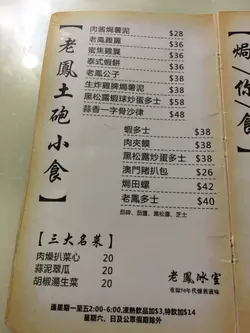 【老鳳土砲小食】
肉醬焗薯泥 $28
老鳳雞翼 $36
蜜焦雞翼 $36
泰式蝦餅 $36
老鳳公子 $38
生炸雞脾焗薯泥 $38
黑松露蝦球炒蛋多士 $58
蒜香一字骨沙律 $48
蝦多士 $38
肉夾饃 $38
黑松露炒蛋多士 $38
澳門豬扒包 $38
焗田螺 $42
老鳳多士 $40
茄蓉、茄薑、黑松露、芝士
【三大名菜】
肉燥扒菜心 20
蒜泥翠瓜 20
胡椒湯生菜 20
老鳳冰室
重溫50年代懷舊滋味
逢星期一至五2:00-6:00,凍熱飲品加$3,特飲加$14
星期六、日及公眾假期除外
焗/